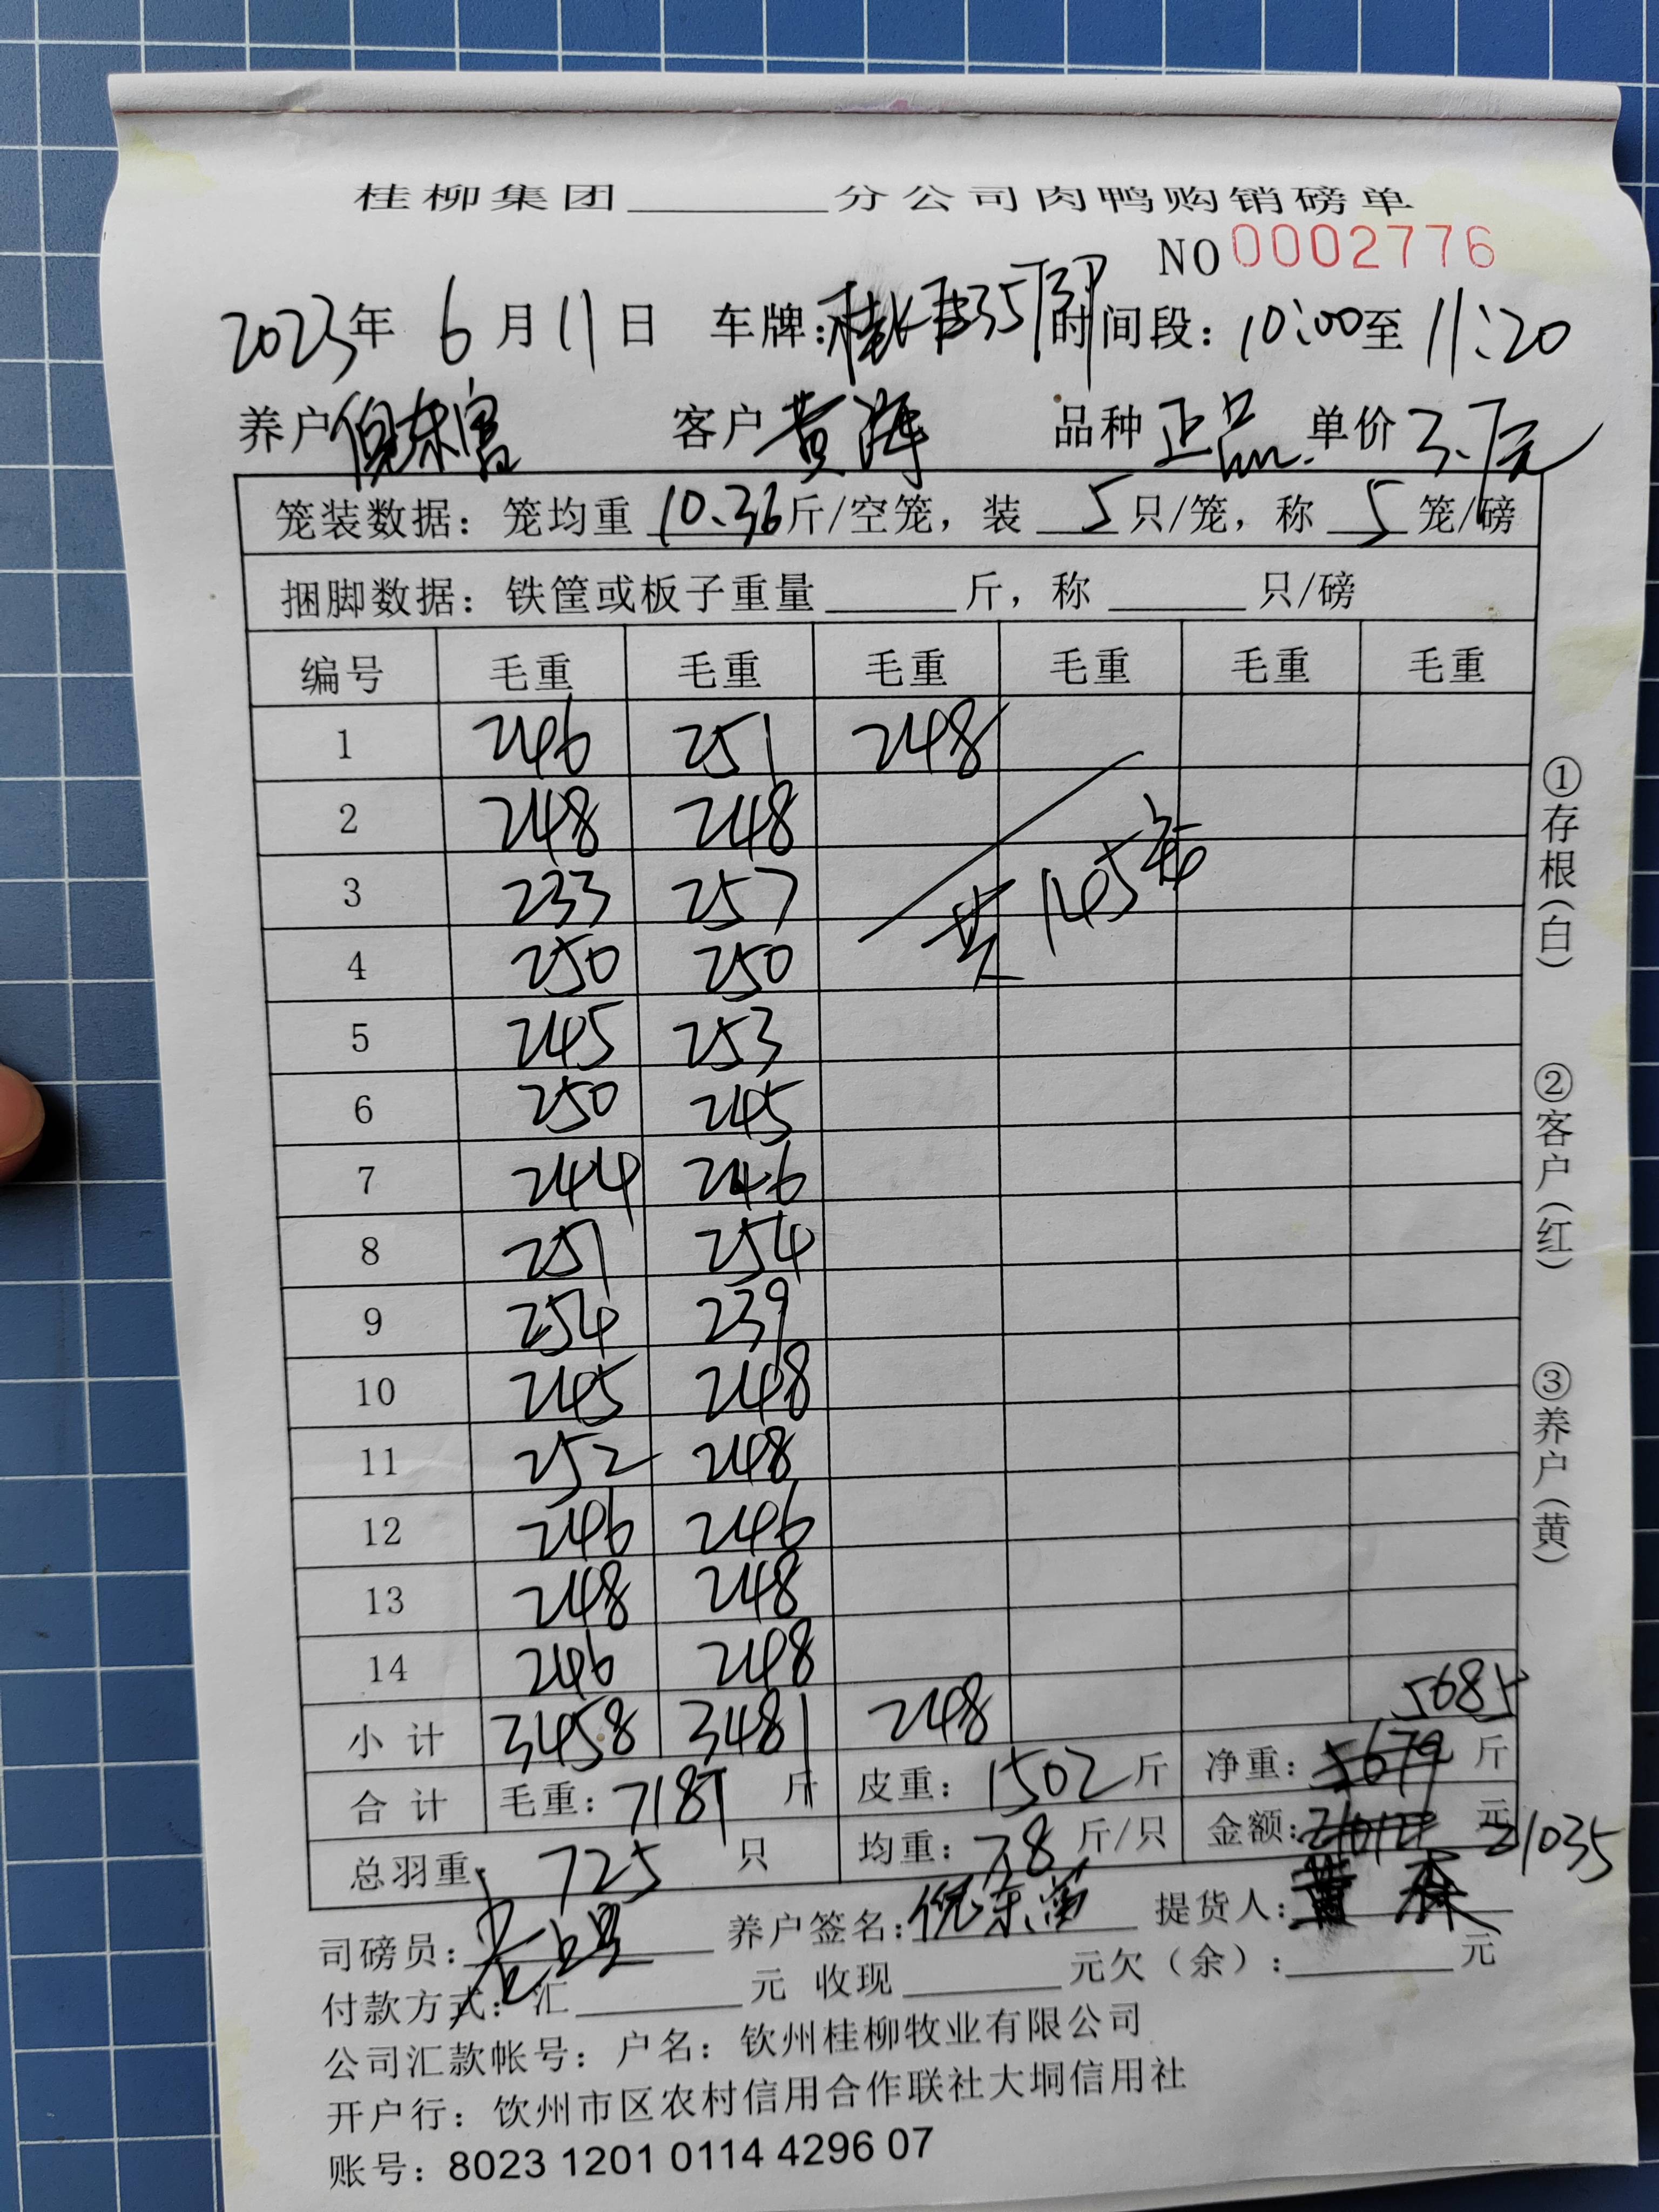 桂柳集团______分公司肉鸭购销磅单
NO 0002776
2023年 6月11日 车牌: 时间段：10:00至 11:20
养户 客户 黄 品种 正品 单价 3.7元
笼装数据：笼均重 10.36 斤/空笼，装 5 只/笼，称 5 笼/磅
捆脚数据：铁筐或板子重量______斤，称______只/磅
编号 毛重 毛重 毛重 毛重 毛重 毛重
1 246 251 248
2 248 248
3 233 257 共145笼
4 250 250
5 245 253
6 250 245
7 244 246
8 251 254
9 254 239
10 245 248
11 252 248
12 246 246
13 248 248
14 246 248
5685
小计 3458 3481 248
合计 毛重：7187 斤 皮重：1502斤 净重：5679 斤
总羽重： 725 只 均重：7.8 斤/只 金额： 元 21035
司磅员： 养户签名：倪东富 提货人：黄森
付款方式：汇______元 收现______元欠（余）：______元
公司汇款帐号：户名：钦州桂柳牧业有限公司
开户行：钦州市区农村信用合作联社大垌信用社
账号：8023 1201 0114 4296 07
①存根（白）
②客户（红）
③养户（黄）